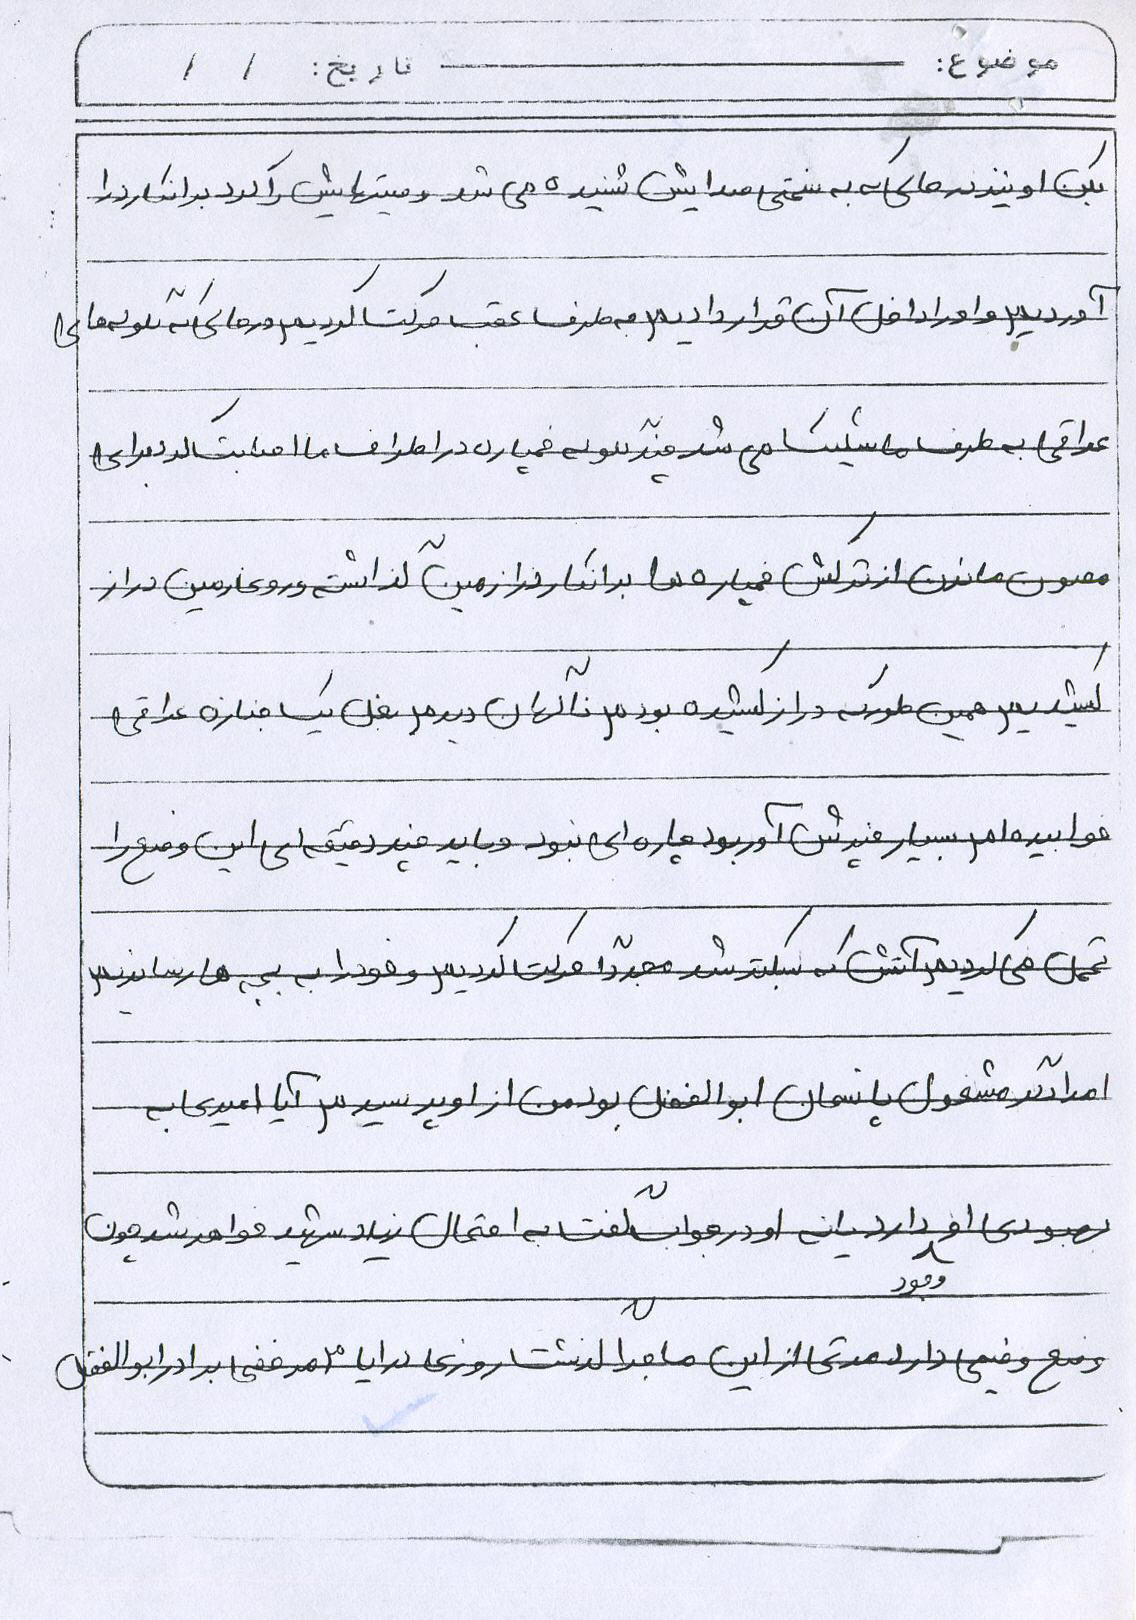 موضوع: تاریخ: / /
بکن او نیز در حالی که به سختی صدایش شنیده می شد وصیتهایش را کرد برانکارد را
آوردیم و او را داخل آن قرار دادیم به طرف عقب حرکت کردیم در حالی که گلوله های
عراقی به طرف ما شلیک می شد چند گلوله خمپاره در اطراف ما اصابت کرد برای
مصون ماندن از ترکش خمپاره ها برانکارد را زمین گذاشته و روی زمین دراز
کشیدیم همین طور که دراز کشیده بودم ناگهان دیدم بغل یک جنازه عراقی
خوابیده ام بسیار چندش آور بود چاره ای نبود و باید چند دقیقه ای این وضع را
تحمل می کردیم آتش که سبکتر شد مجدداً حرکت کردیم و خود را به بچه ها رساندیم
امدادگر مشغول پانسمان ابوالفضل بود من از او پرسیدم آیا امیدی به
بهبودی او وجود دارد یا نه او در جواب گفت به احتمال زیاد شهید خواهد شد چون
وضع وخیمی دارد مدتی از این ماجرا گذشت روزی در ایام مرخصی برادر ابوالفضل